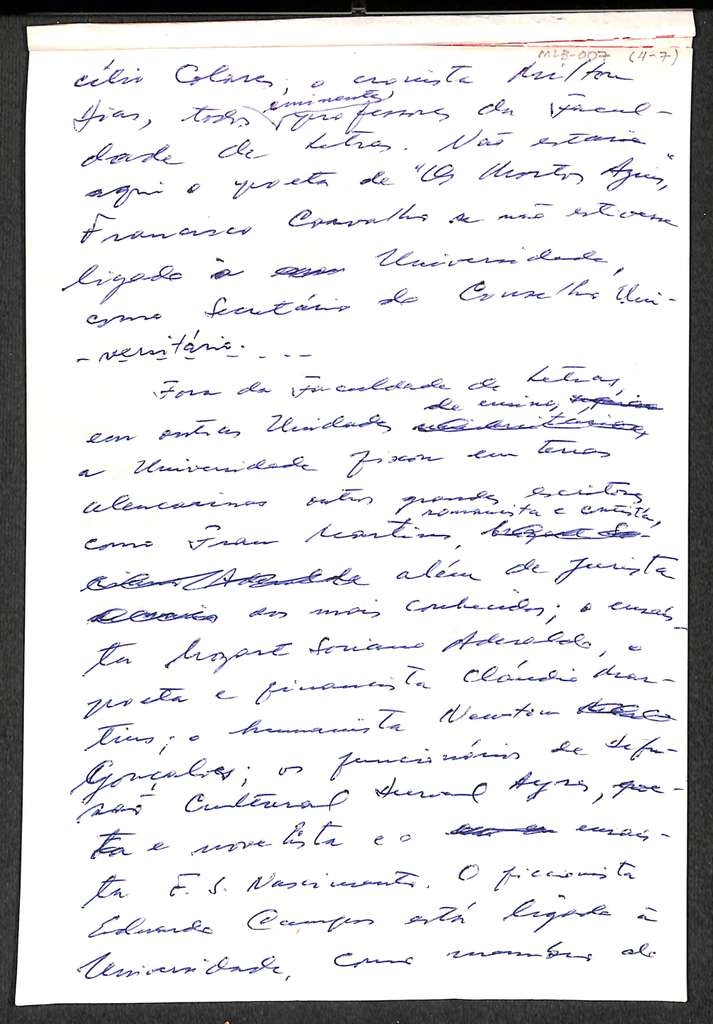 MLB-007 (4-7)
cílio Colares; o cronista Milton
Dias, todos eminentes professores da Facul-
dade de Letras. Não estaria
aqui o poeta de "Os Mortos Azuis",
Francisco Carvalho se não estivesse
ligado à Universidade,
como Secretário do Conselho Uni-
versitário.
Fora da Faculdade de Letras,
em outras Unidades de ensino,
a Universidade fixou em terras
alencarinas outros grandes escritores
como Fran Martins, romancista e contista,
além de jurista
dos mais conhecidos; o ensaís-
ta Mozart Soriano Aderaldo, o
poeta e financista Cláudio Mar-
tins; o humanista Newton
Gonçalves; os funcionários de Difu-
são Cultural Durval Ayres, poe-
ta e novelista e o ensaís-
ta F. S. Nascimento. O ficcionista
Eduardo Campos está ligado à
Universidade, como membro do